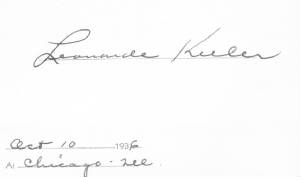 Leonarde Keeler
Oct 10 1936
At Chicago - Ill.